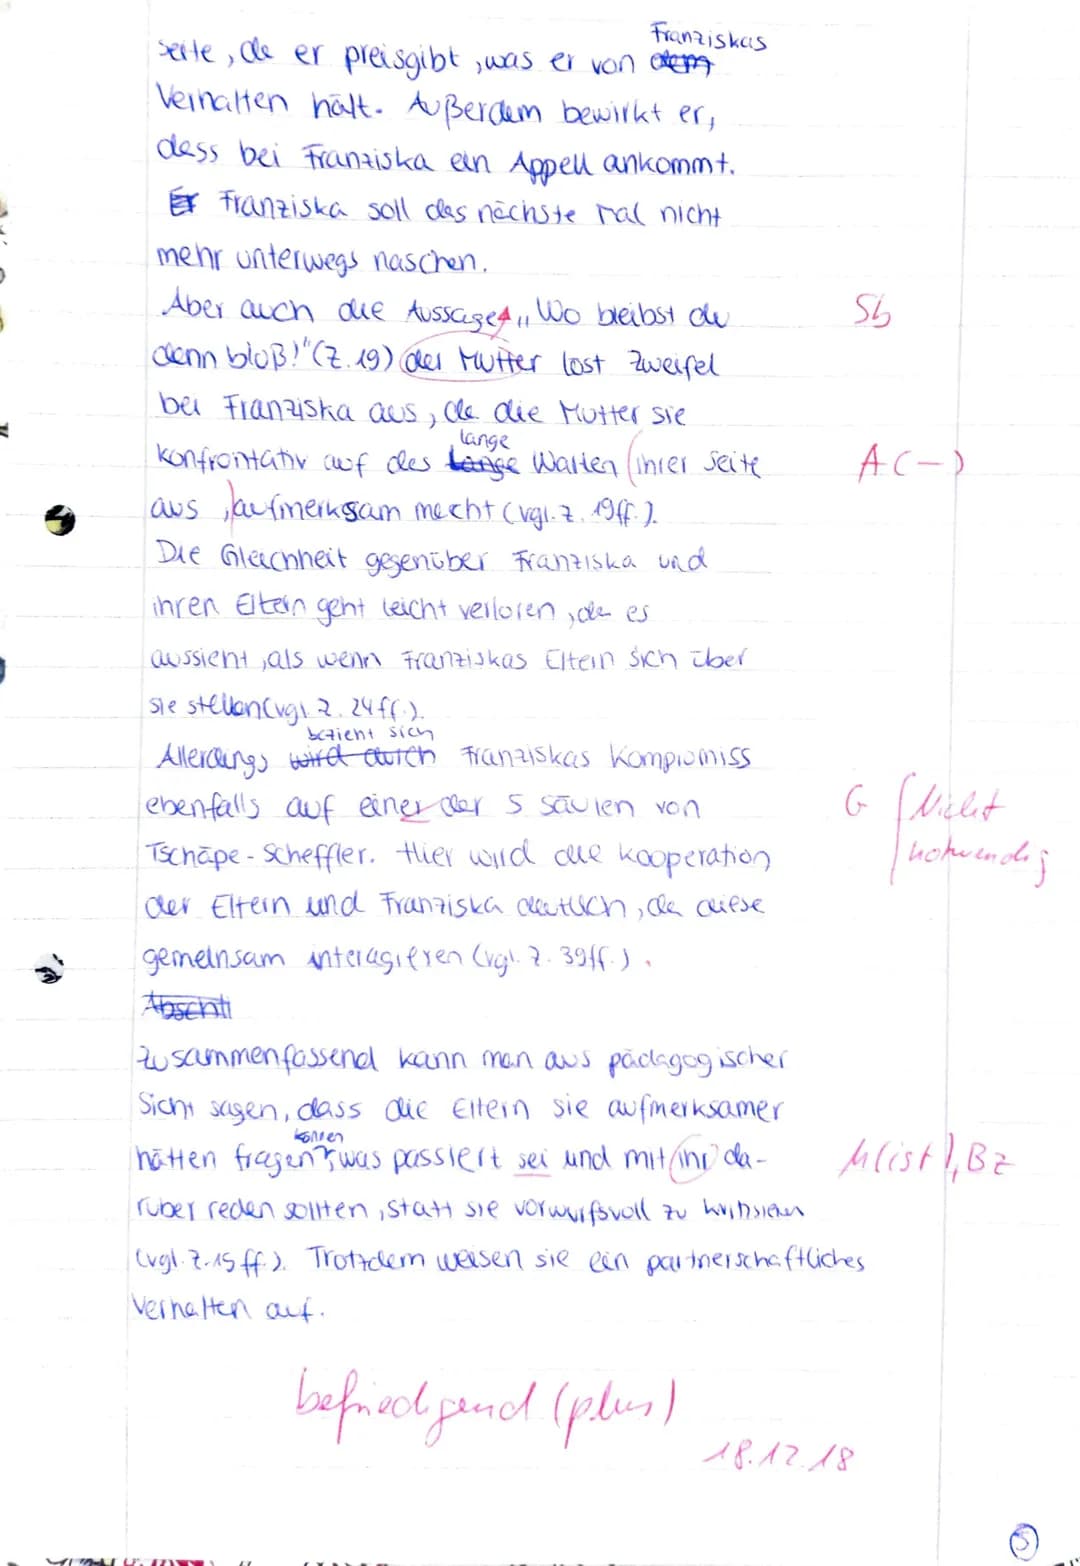 Franziskas
seite, da er preisgibt, was er von dem
Verhalten hält. Außerdem bewirkt er,
dass bei Franziska ein Appell ankommt.
Er Franziska soll das nächste Mal nicht
mehr unterwegs naschen.
Aber auch die Aussage, „Wo bleibst du Sb
denn bloß!" (Z. 19) der Mutter löst Zweifel
bei Franziska aus, da die Mutter sie
lange
konfrontativ auf das lange Warten ihrer Seite A (-)
aus, aufmerksam macht (vgl. Z. 19ff.).
Die Gleichheit gegenüber Franziska und
ihren Eltern geht leicht verloren, da es
aussieht, als wenn Franziskas Eltern sich über
sie stellen (vgl. Z. 24ff.).
bezieht sich
Allerdings wird durch Franziskas Kompromiss
ebenfalls auf einer der 5 Säulen von G Nicht
Tschäpe-Scheffler. Hier wird die Kooperation notwendig
der Eltern und Franziska deutlich, da diese
gemeinsam interagieren (vgl. Z. 39ff.).
Abschli
Zusammenfassend kann man aus pädagogischer
Sicht sagen, dass die Eltern sie aufmerksamer
können
hätten fragen, was passiert sei und mit ihr da- M (ist), Bz
rüber reden sollten, statt sie vorwurfsvoll zu kritisieren
(vgl. Z. 15 ff.). Trotzdem weisen sie ein partnerschaftliches
Verhalten auf.
befriedigend (plus)
18.12.18
5